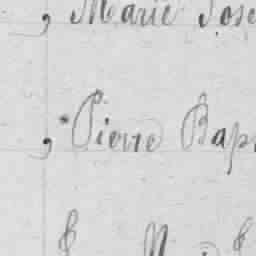 , Marie Jose
, Pierre Bap